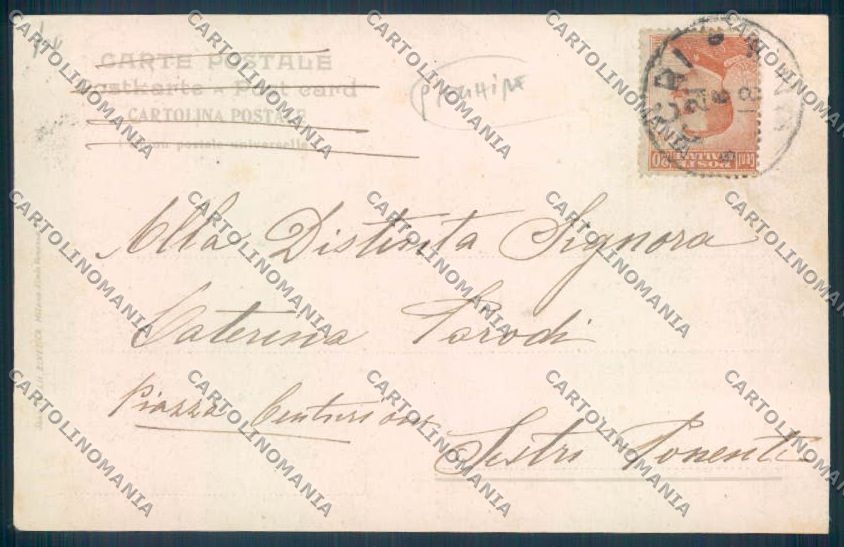 CARTE POSTALE
Postkarte - Post card
CARTOLINA POSTALE
postale universelle
Alla Distinta Signora
Caterina Parodi
Piazza Centurione
Sestri Ponente
POSTE ITALIANE
CARTOLINOMANIA